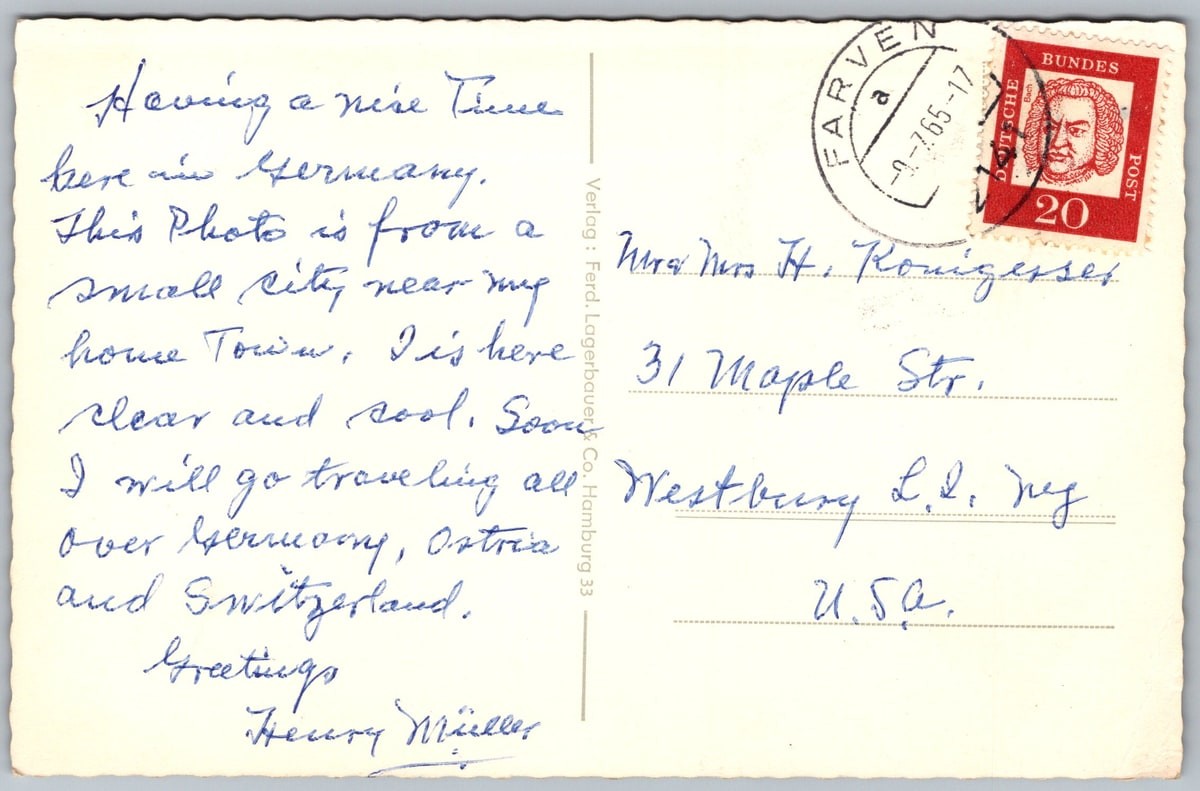 Having a nise Time
here in Germany.
This Photo is from a
small city near my
home Town. I is here
clear and cool. Soon
I will go traveling all
over Germany, Ostria
and Switzerland.
Greetings
Henry Müller
Verlag: Ferd. Lagerbauer & Co. Hamburg 33
FARVEN
a
-9.-7.65-17
2141
DEUTSCHE
BUNDES
POST
Bach
20
Mr & Mrs H. Konigesser
31 Maple Str.
Westbury L.I. Ny
U.S.A.